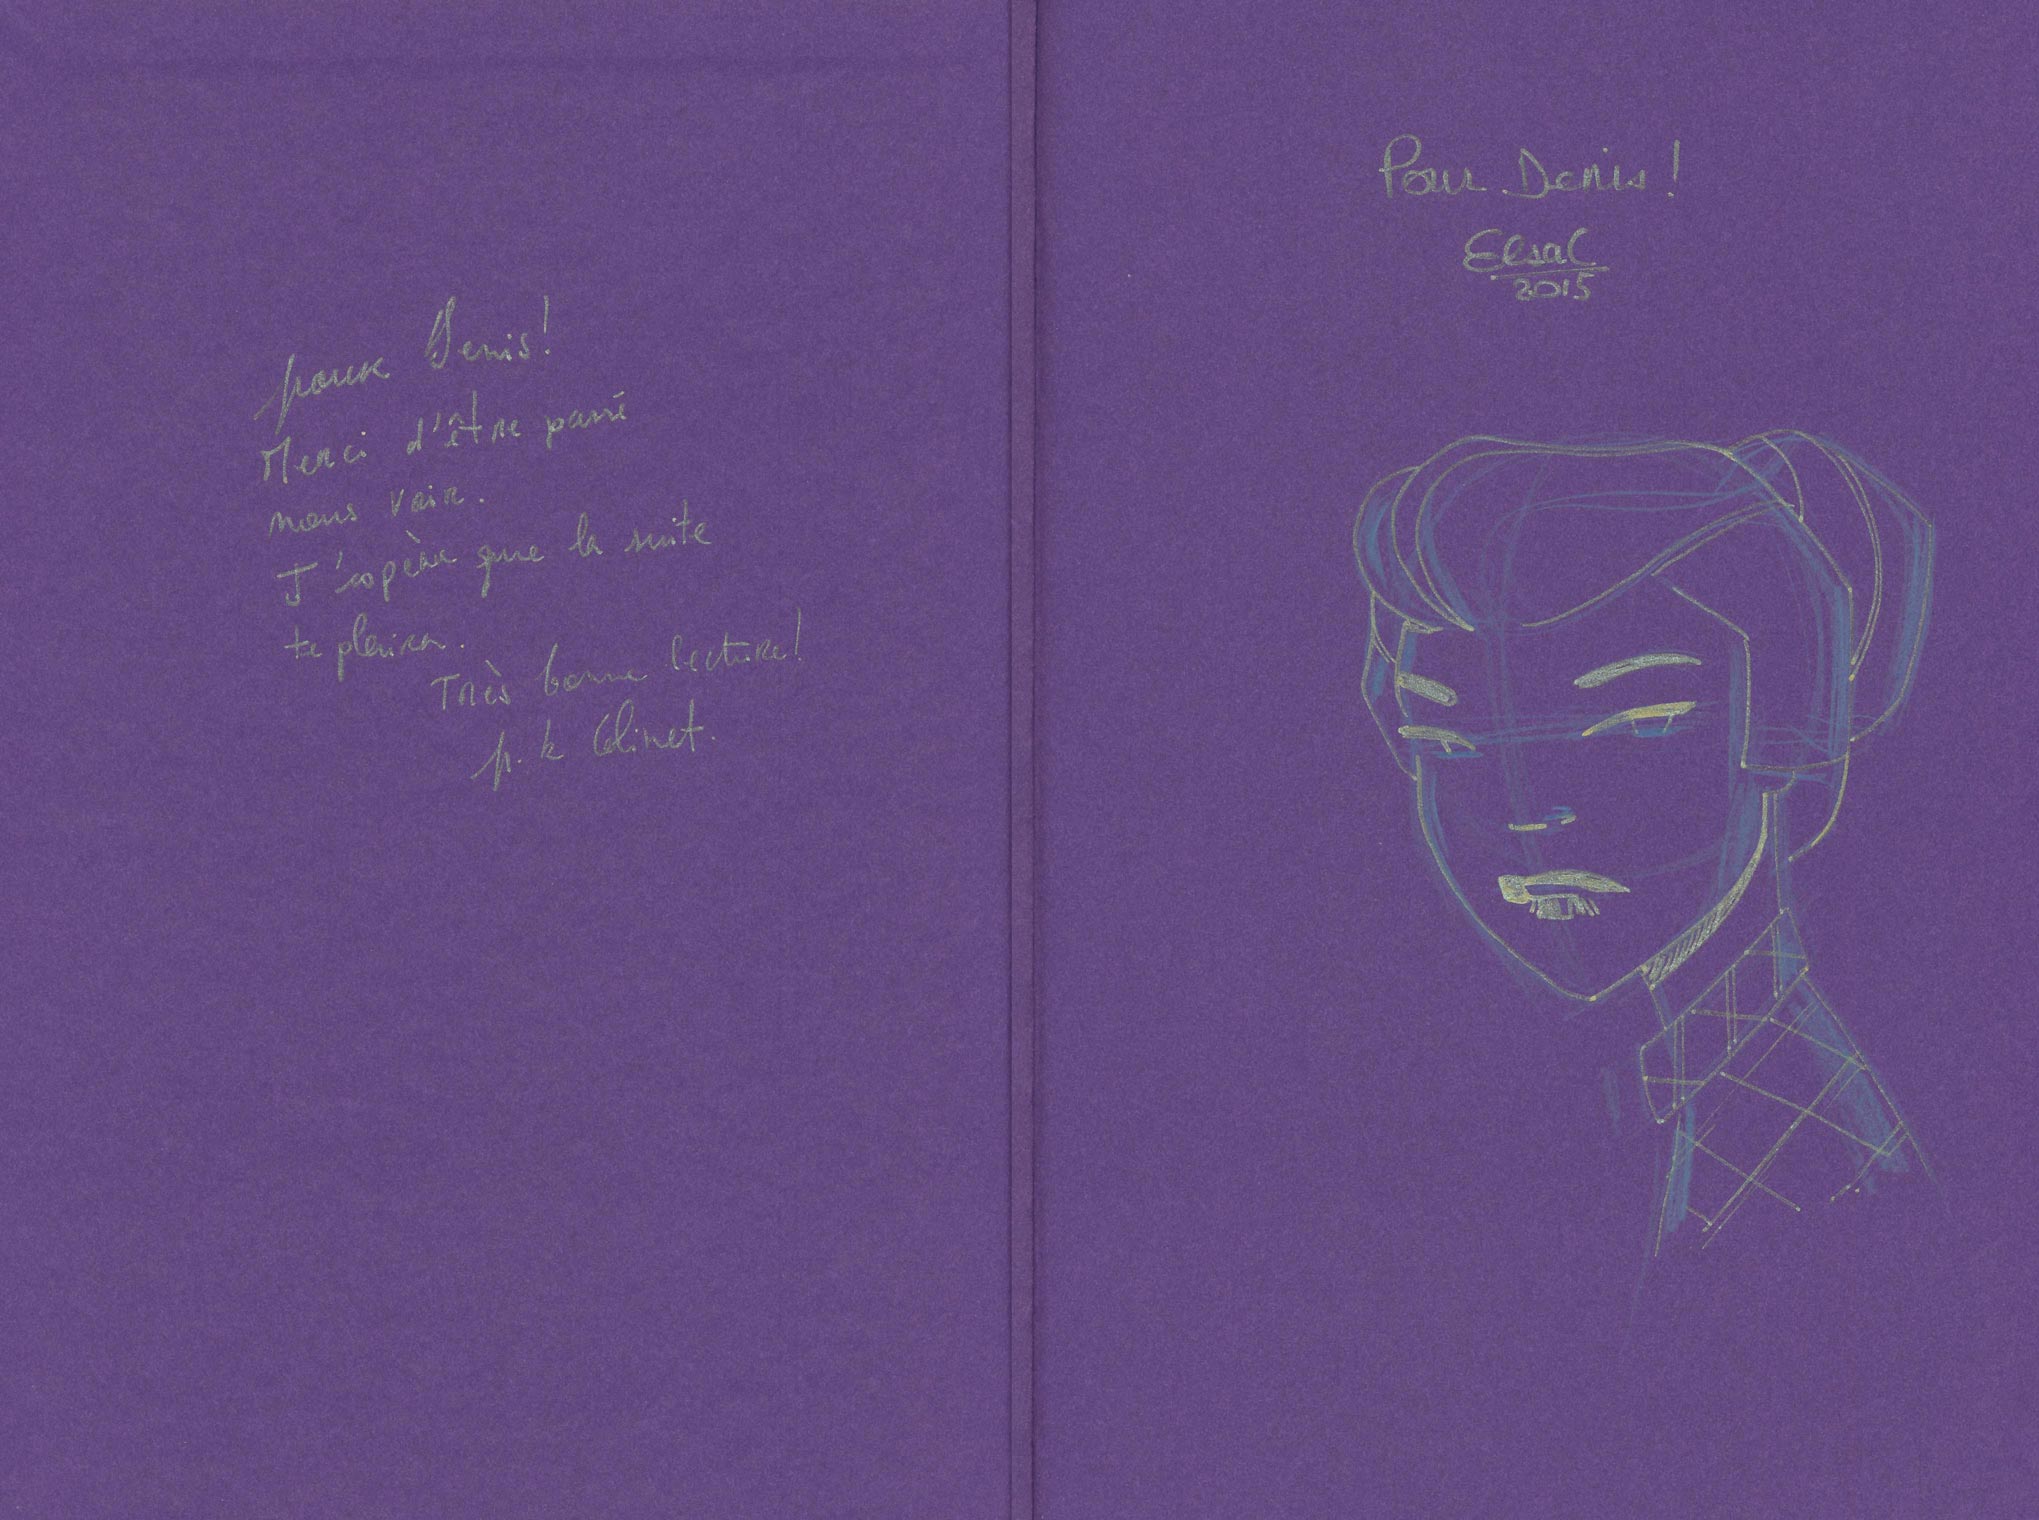 pour Denis!
Merci d'être passé
nous voir.
J'espère que la suite
te plaira.
Très bonne lecture!
Pour Denis!
2015